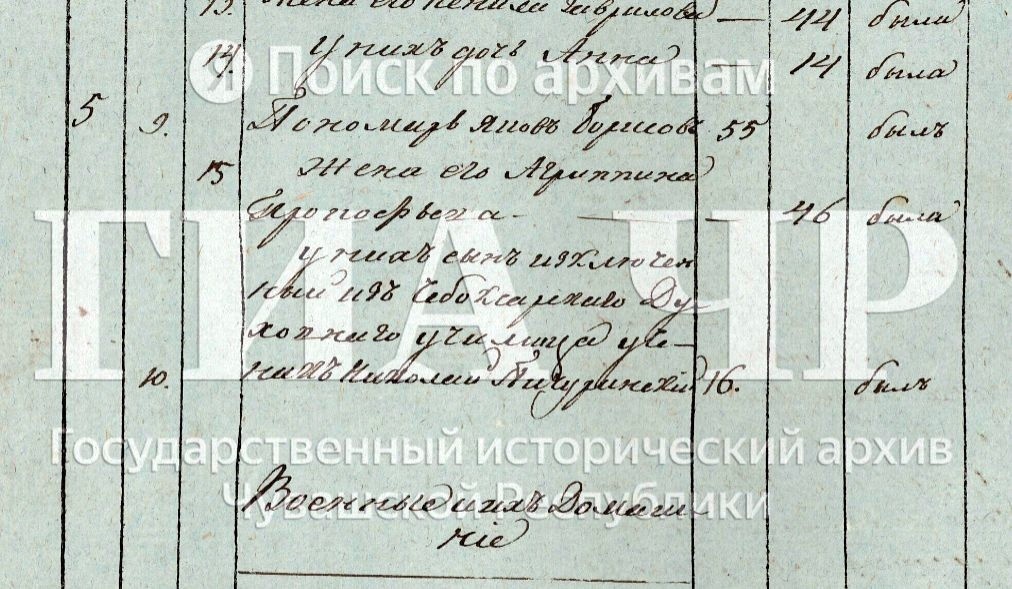 13. Жена его Гаврилова — 44 была
14. у нихъ дочь Анна — 14 была
Поиск по архивам
5 9. Пономарь Яковъ Борисовъ 55 былъ
15 Жена его Агриппина
Прокофьева — — 46 была
ГИА ЧР
у нихъ сынъ изключен
ный изъ Чебоксарскаго Ду
ховнаго училища уче-
10. никъ Николай Пичуринскій 16. былъ
Государственный исторический архив
Чувашской Республики
Военные и ихъ Домаш
ніе